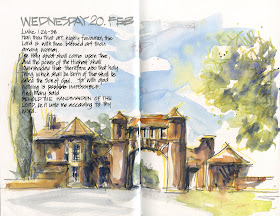 WEDNESDAY 20. FEB
Luke 1:26-38
Hail thou that art highly favoured, the
Lord is with thee: blessed art thou
among women.
The Holy Ghost shall come upon thee,
and the power of the Highest shall
overshadow thee: therefore also that holy
thing which shall be born of thee shall be
called the Son of God. for with God
nothing is impossible
And Mary said
BEHOLD THE HANDMAIDEN OF THE
LORD, be it unto me according to thy
word.